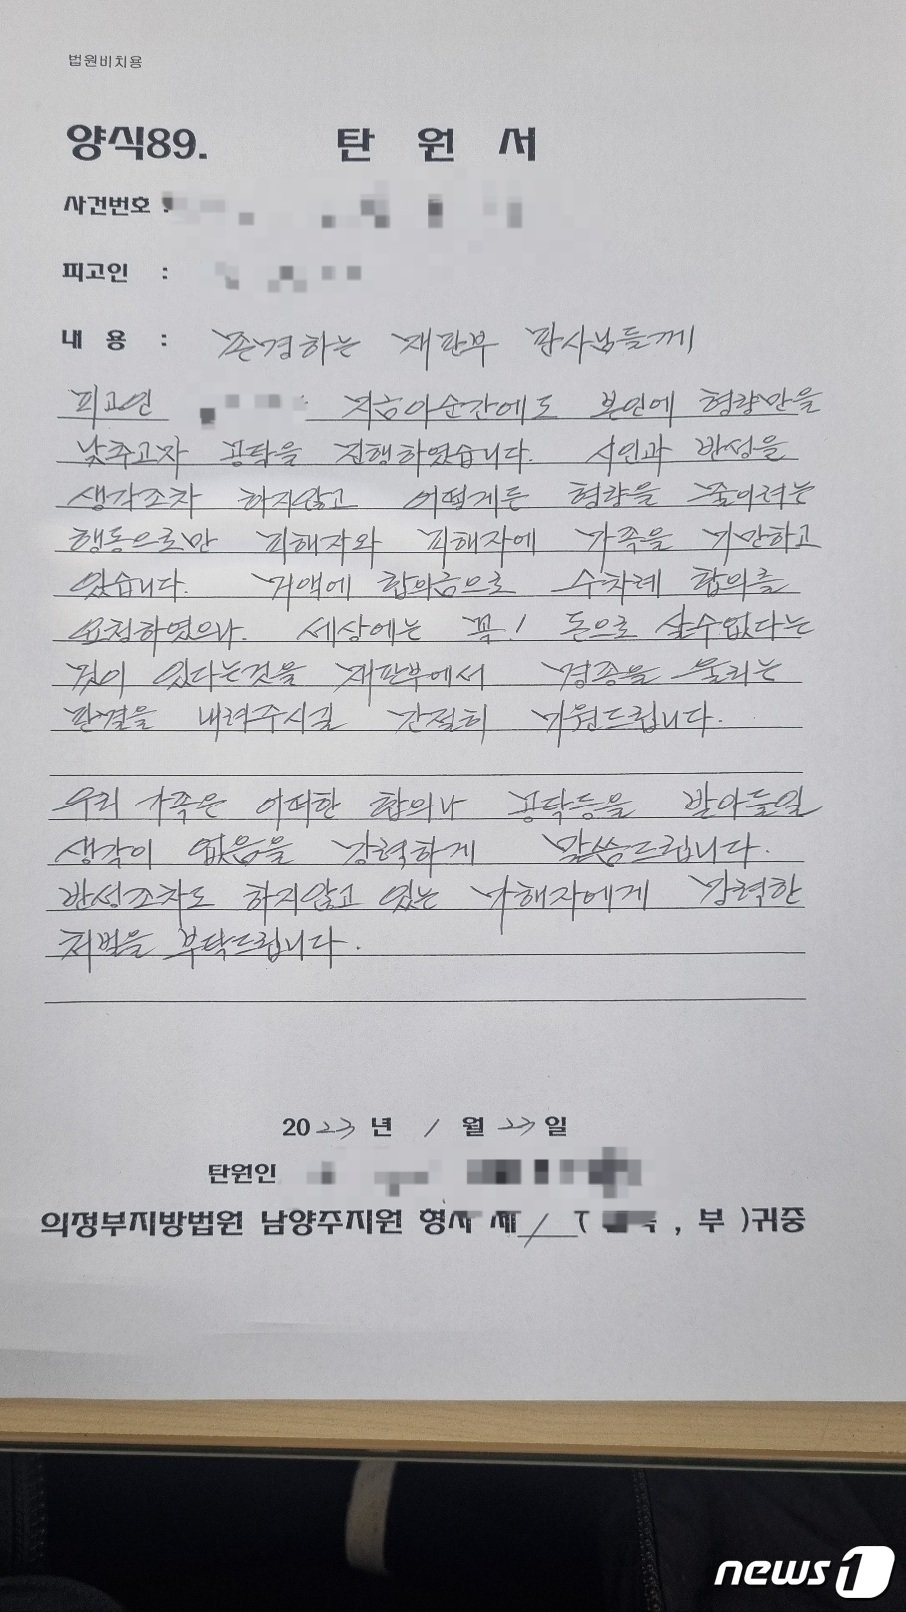 법원비치용
양식89. 탄 원 서
사건번호 :
피고인 :
내 용 : 존경하는 재판부 판사님들께
피고인 지금이순간에도 본인에 형량만을
낮추고자 공탁을 진행하였습니다. 시인과 반성을
생각조차 하지않고 어떻게든 형량을 줄이려는
행동으로만 피해자와 피해자에 가족을 기만하고
있습니다. 거액에 합의금으로 수차례 합의를
요청하였으나. 세상에는 꼭! 돈으로 살수없다는
것이 있다는것을 재판부에서 경종을 울리는
판결을 내려주시길 간절히 기원드립니다.
우리 가족은 어떠한 합의나 공탁등을 받아들일
생각이 없음을 강력하게 말씀드립니다.
반성조차도 하지않고 있는 가해자에게 강력한
처벌을 부탁드립니다.
2023년 1월 23일
탄원인
의정부지방법원 남양주지원 형사 제1 ( , 부 )귀중
news1